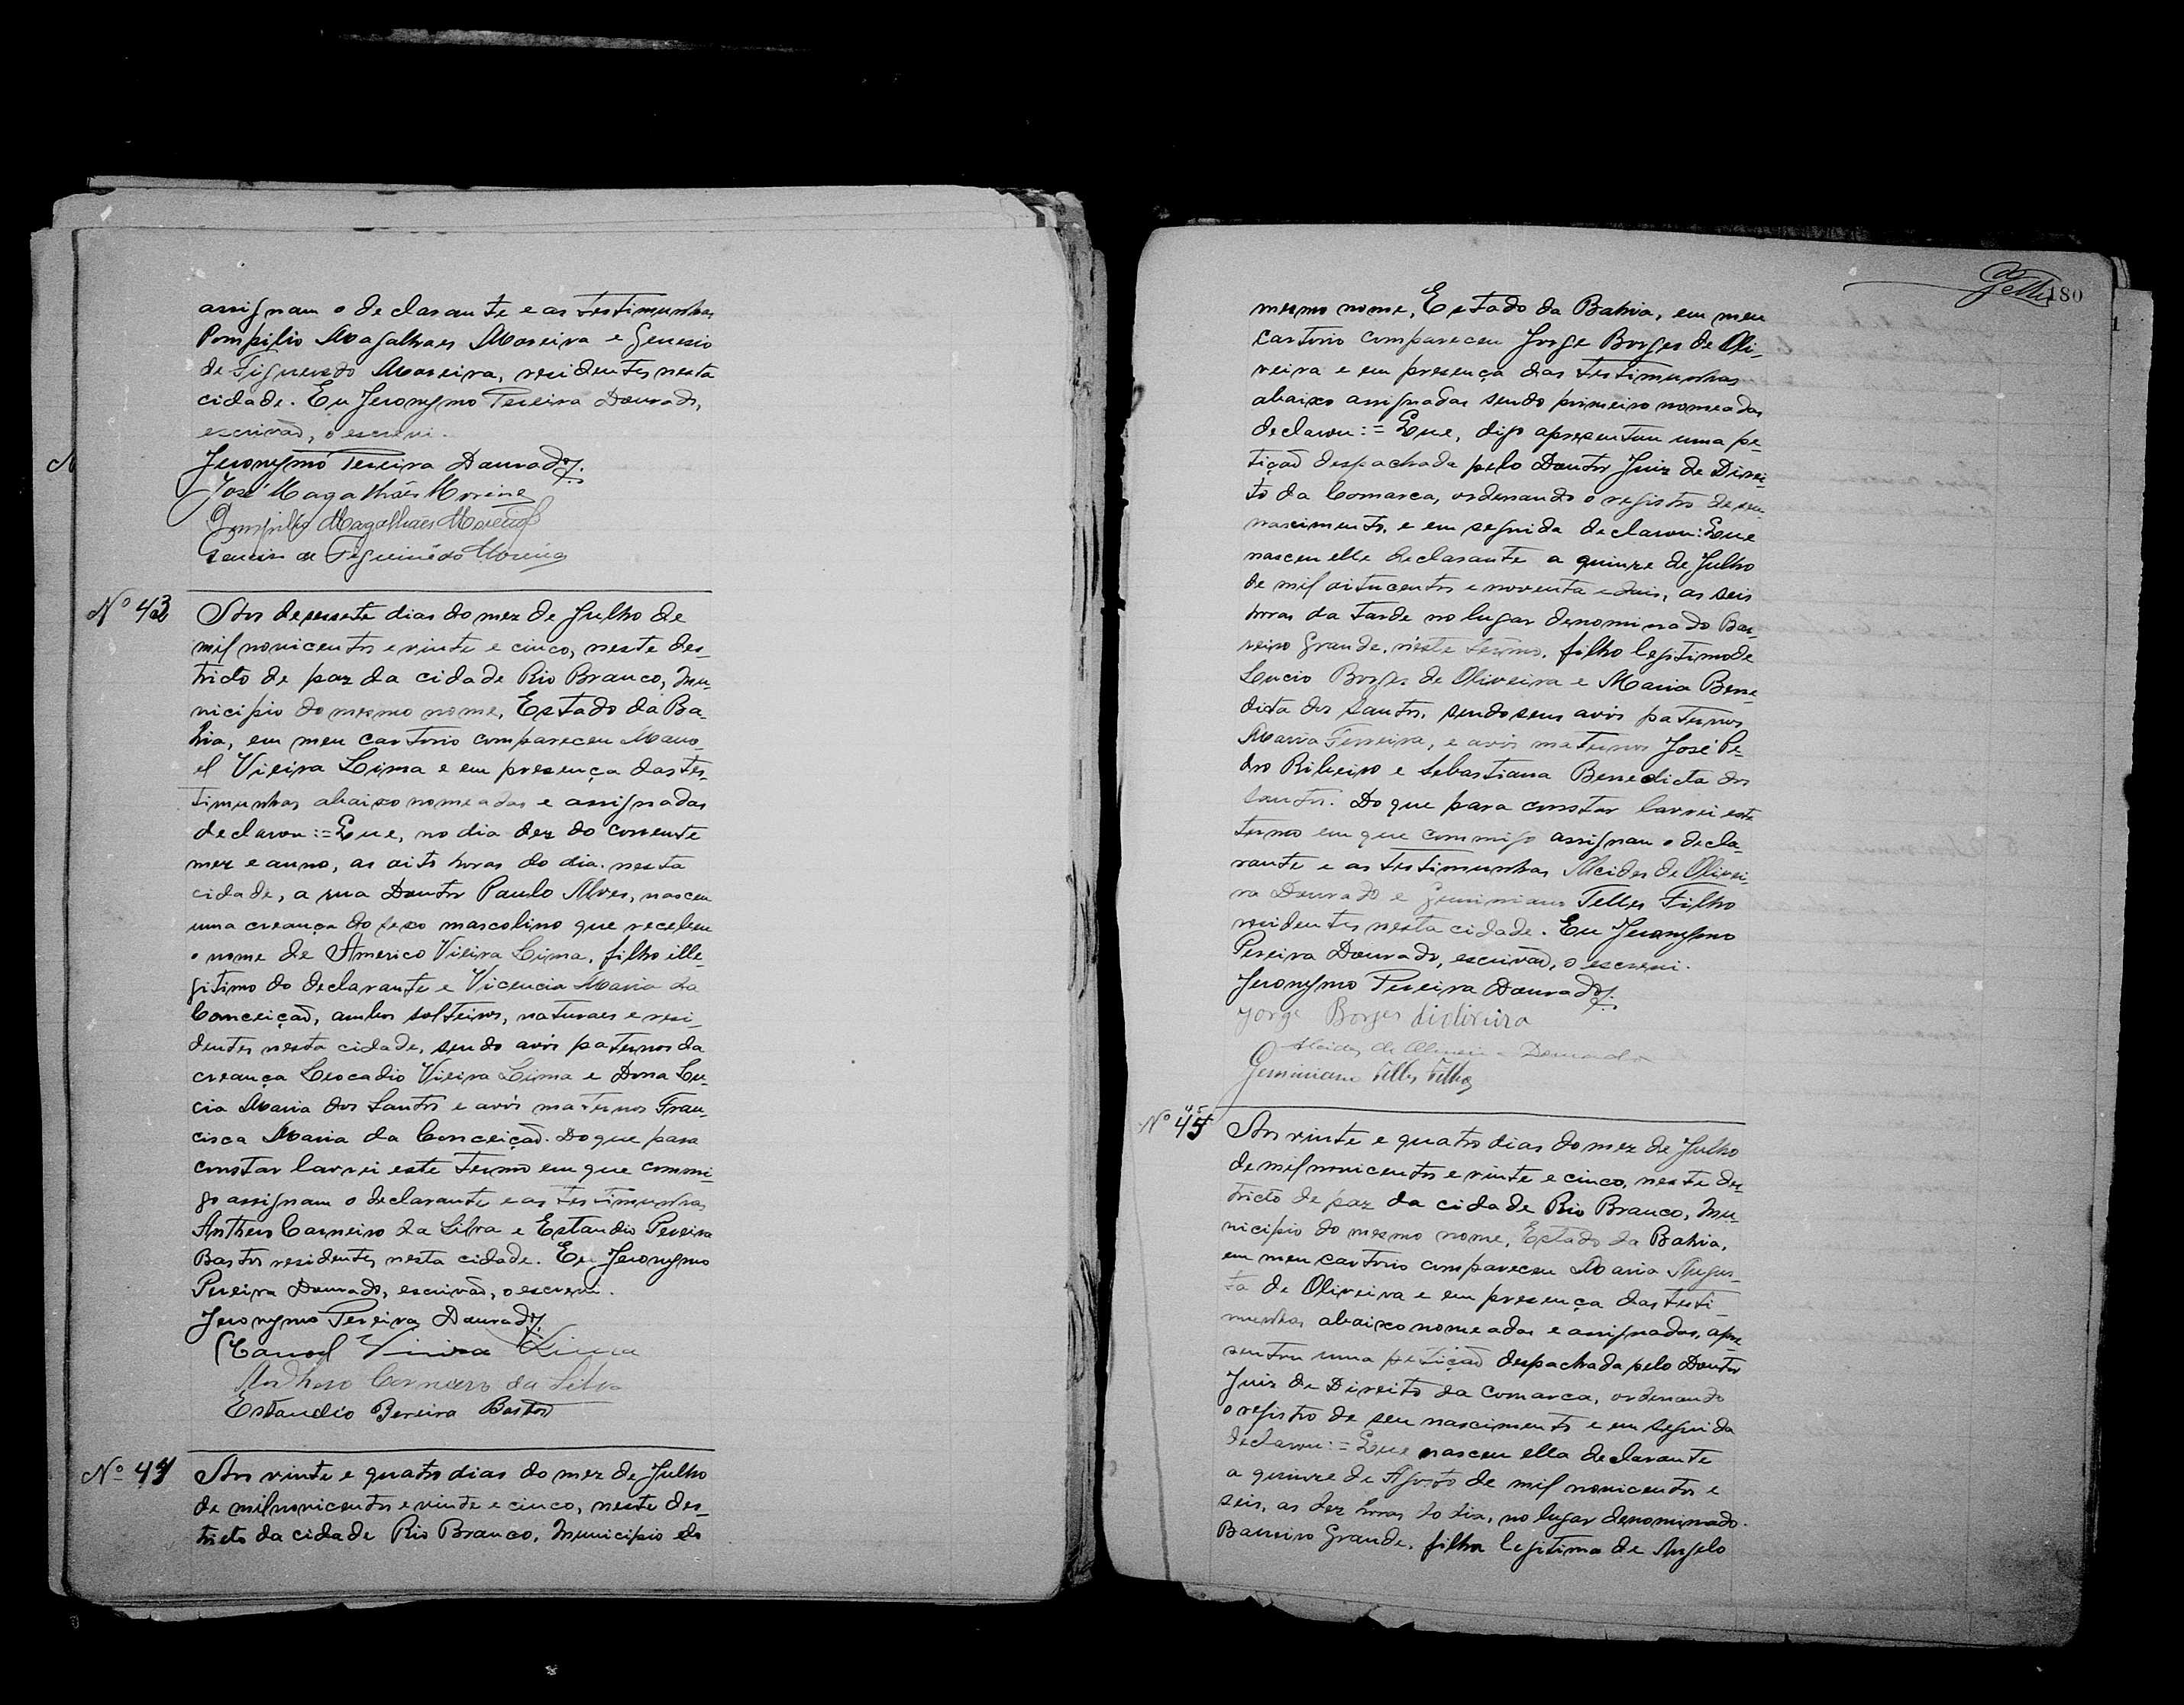 assignam o declarante e as testimunhas
Pompilio Magalhaes Moreira e Genesio
de Figueredo Moreira, residentes nesta
cidade. Eu Jeronymo Pereira Dourado,
escrivão, o escrevi.
Jeronymo Pereira Dourado
José Magalhães Moreira
Pompilio Magalhães Moreira
Genesio de Figueirêdo Moreira
Nº 43
Aos desessete dias do mez de Julho de
mil novicentos e vinte e cinco, neste des-
tricto de paz da cidade Rio Branco, Mu-
nicipio do mesmo nome, Estado da Ba-
hia, em meu cartorio compareceu Mano-
el Vieira Lima e em presença das tes-
timunhas abaixo nomeadas e assignadas
declarou:=Que, no dia dez do corrente
mez e anno, as oito horas do dia, nesta
cidade, a rua Doutor Paulo Alves, nasceu
uma creança do sexo mascolino que recebeu
o nome de Americo Vieira Lima, filho ille-
gitimo do declarante e Vicencia Maria da
Conceição, ambos solteiros, naturaes e resi-
dentes nesta cidade, sendo avós paternos da
creança Leocadio Vieira Lima e Dona Lu-
cia Maria dos Santos e avós maternos Fran-
cisca Maria da Conceição. Do que para
constar lavrei este termo em que commi-
go assignam o declarante e as testimunhas
Anthero Carneiro da Silva e Estaudio Pereira
Bastos residentes nesta cidade. Eu Jeronymo
Pereira Dourado, escrivão, o escrevi.
Jeronymo Pereira Dourado
Manoel Vieira Lima
Anthero Carneiro da Silva
Estaudio Pereira Bastos
Nº 44
Aos vinte e quatro dias do mez de Julho
de mil novicentos e vinte e cinco, neste des-
tricto da cidade Rio Branco, Municipio do
180
mesmo nome, Estado da Bahia, em meu
cartorio compareceu Jorge Borges de Oli-
veira e em presença das testimunhas
abaixo assignadas sendo primeiro nomeadas
declarou:= Que, digo apresentou uma pe-
tição despachada pelo Doutor Juiz de Direi-
to da Comarca, ordenando o registro de seu
nascimento, e em seguida declarou: Que
nasceu elle declarante a quinze de Julho
de mil oitucentos e noventa e dois, as seis
horas da tarde no lugar denominado Bar-
reiro Grande, neste termo, filho legitimo de
Lucio Borges de Oliveira e Maria Bene-
dicta dos Santos, sendo seus avós paternos
Maria Ferreira, e avós maternos José Pe-
dro Ribeiro e Sebastiana Benedicta dos
Santos. Do que para constar lavrei este
termo em que commigo assignam o decla-
rante e as testimunhas Alcides de Olivei-
ra Dourado e Geminiano Telles Filho
residentes nesta cidade. Eu Jeronymo
Pereira Dourado, escrivão, o escrevi.
Jeronymo Pereira Dourado
Jorge Borges di oliveira
Alcides de Oliveira Dourado
Geminiano Telles Filho
Nº 45
Aos vinte e quatro dias do mez de Julho
de mil novicentos e vinte e cinco, neste des-
tricto de paz da cidade Rio Branco, Mu-
nicipio do mesmo nome, Estado da Bahia,
em meu cartorio compareceu Maria Augus-
ta de Oliveira e em presença das testi-
munhas abaixo nomeadas e assignadas, apre-
sentou uma petição despachada pelo Doutor
Juiz de Direito da Comarca, ordenando
o registro de seu nascimento e em seguida
declarou:= Que nasceu ella declarante
a quinze de Agosto de mil novicentos e
seis, as dez horas do dia, no lugar denominado
Barreiro Grande, filha legitima de Angelo